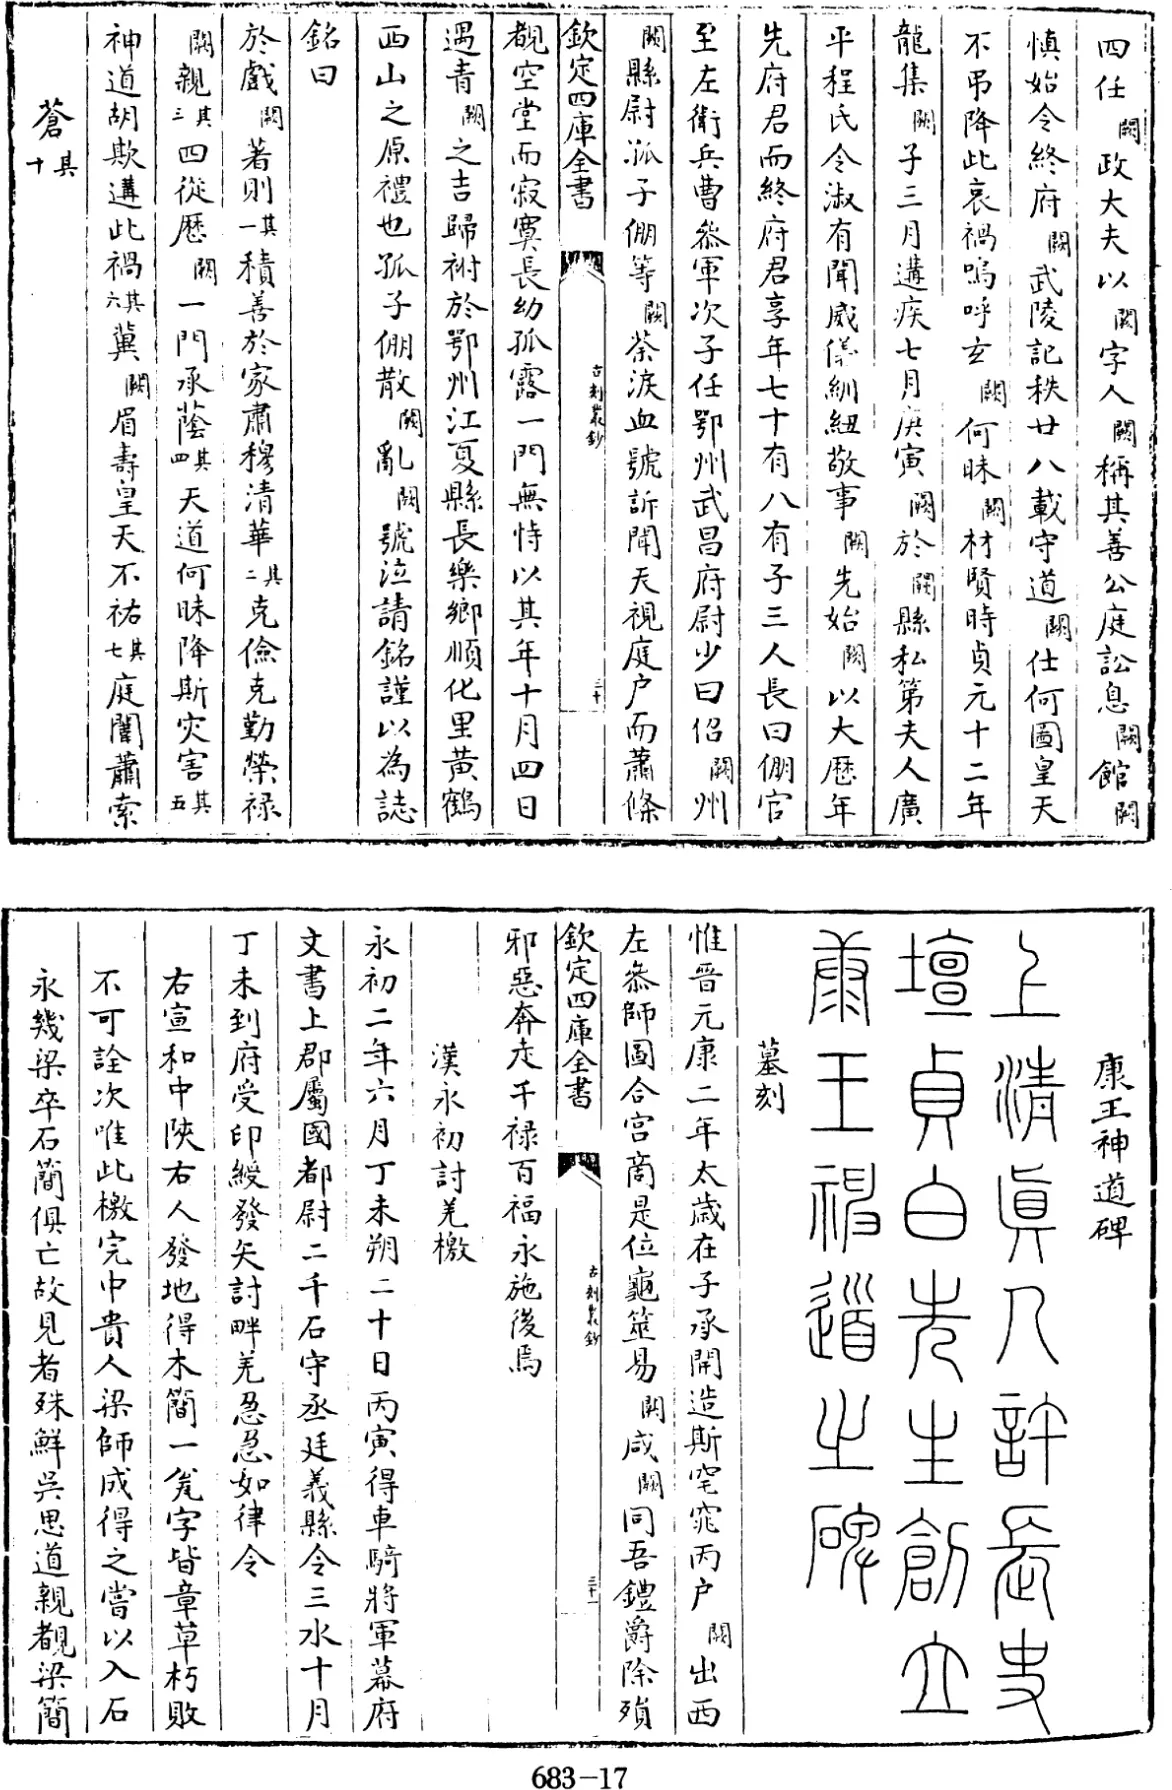 四任闕政大夫以闕字人闕稱其善公庭訟息闕館闕
慎始令終府闕武陵記秩廿八載守道闕仕何圖皇天
不弔降此哀禍嗚呼玄闕何昧闕材賢時貞元十二年
龍集闕子三月遘疾七月庚寅闕於闕縣私第夫人廣
平程氏令淑有聞威儀紃紐敬事闕先始闕以大歷年
先府君而終府君享年七十有八有子三人長曰倗官
至左衛兵曹叅軍次子任鄂州武昌府尉少曰佋闕州
闕縣尉孤子倗等闕荼淚血號訴聞天視庭户而蕭條
欽定四庫全書
古刻叢鈔
三十
覩空堂而寂寞長幼孤露一門無恃以其年十月四日
遇青闕之吉歸祔於鄂州江夏縣長樂鄉順化里黄鶴
西山之原禮也孤子倗散闕亂闕號泣請銘謹以為誌
銘曰
於戲闕著則其一積善於家肅穆清華其二克儉克勤榮禄
闕親其三四從歷闕一門承蔭其四天道何昧降斯灾害其五
神道胡欺遘此禍其六冀闕眉壽皇天不祐其七庭闈蕭索
蒼其十
康王神道碑
上清真人許長史
壇貞白先生創立
康王神道之碑
墓刻
惟晋元康二年太歳在子承開造斯窀窆丙户闕出西
左叅師圖合宫商是位龜筮易闕咸闕同吾鐙爵除殃
欽定四庫全書
古刻叢鈔
三十一
邪惡奔走千禄百福永施後焉
漢永初討羌檄
永初二年六月丁未朔二十日丙寅得車騎將軍幕府
文書上郡屬國都尉二千石守丞廷義縣令三水十月
丁未到府受印綬發矢討畔羌急急如律令
右宣和中陜右人發地得木簡一瓮字皆章草朽敗
不可詮次唯此檄完中貴人梁師成得之嘗以入石
永幾梁卒石簡俱亡故見者殊鮮吳思道親覩梁簡
683-17